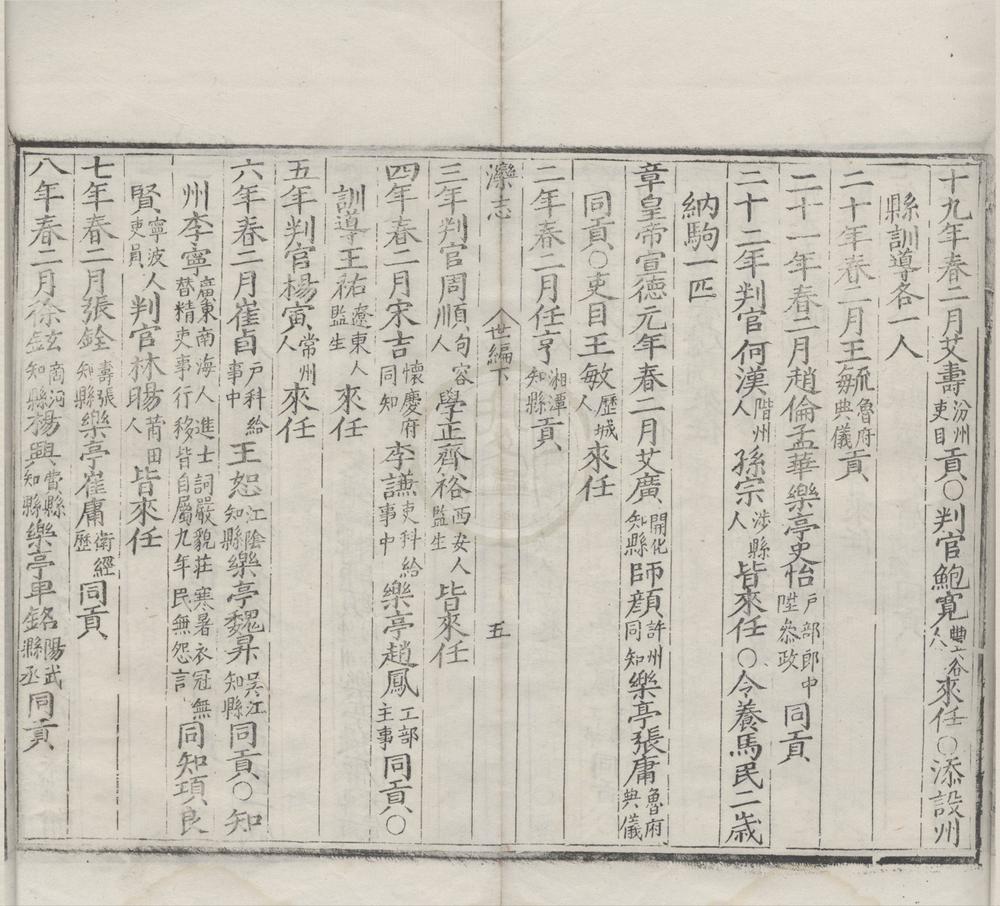 十九年春二月艾壽汾州吏目貢○判官鮑寬人來任○添設州
縣訓導各一人
二十年春二月王毓魯府典儀貢
二十一年春二月趙倫孟華樂亭史怡戶部郎中陞叅政同貢
二十二年判官何漢階州人孫宗涉縣人皆來任○令養馬民二歲
納駒一匹
章皇帝宣德元年春二月艾廣開化知縣師顔許州同知樂亭張庸魯府典儀
同貢○吏目王敏歷城人來任
二年春二月任亨湘潭知縣貢
灤志 世編下 五
三年判官周順句容人學正齊裕西安人監生皆來任
四年春二月宋吉懷慶府同知李讌吏科給事中樂亭趙鳳工部主事同貢○
訓導王祐遼東人監生來任
五年判官楊寅常州人來任
六年春二月崔貞戶科給事中王恕江陰知縣樂亭魏昇吳江知縣同貢○知
州李寧廣東南海人進士詞嚴貌莊寒暑衣冠無替精吏事行移皆自屬九年民無怨言同知項良
賢寧波人吏員判官林暘莆田人皆來任
七年春二月張銓壽張知縣樂亭崔庸衛經歷同貢
八年春二月徐鉉商河知縣楊興費縣知縣樂亭單銘陽武縣丞同貢